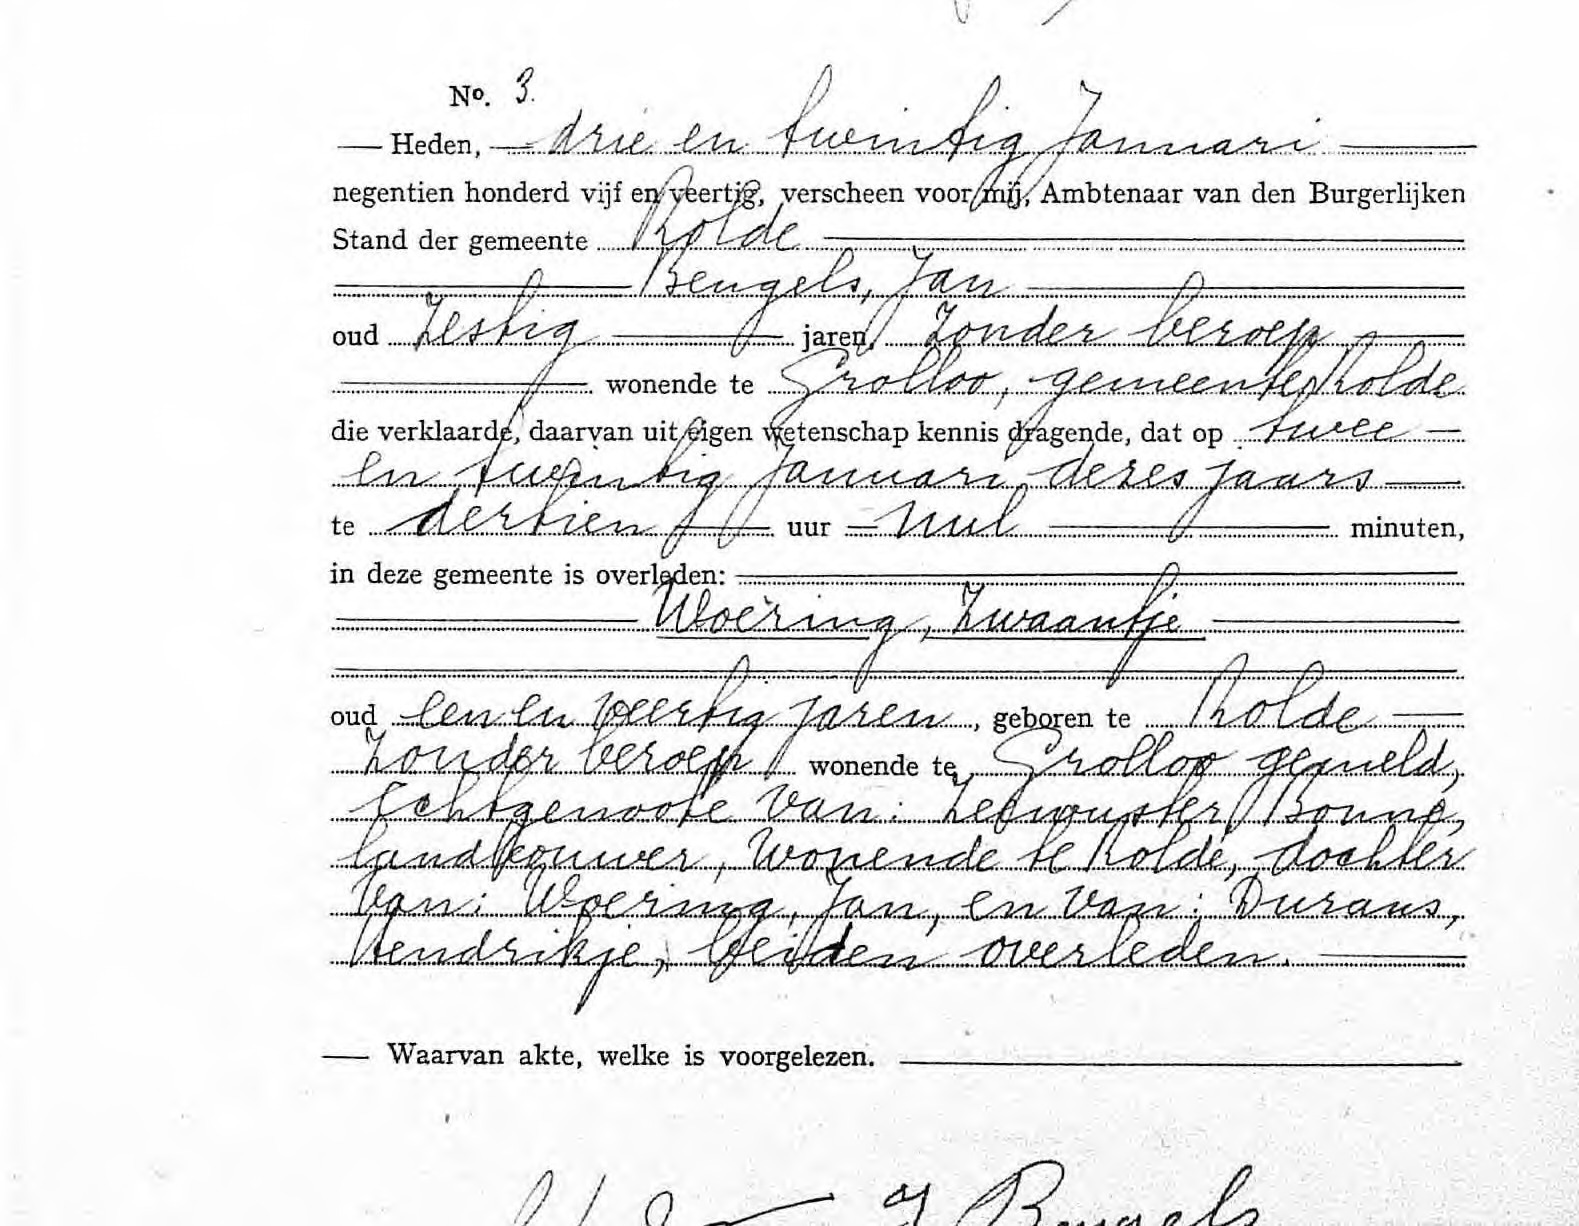 No. 3.
Heden, drie en twintig Januari
negentien honderd vijf en veertig, verscheen voor mij, Ambtenaar van den Burgerlijken
Stand der gemeente Rolde
Beugels, Jan
oud Zestig jaren, Zonder beroep
wonende te Grolloo, gemeente Rolde
die verklaarde, daarvan uit eigen wetenschap kennis dragende, dat op twee
en twintig Januari dezes jaars
te dertien uur nul minuten,
in deze gemeente is overleden:
Woering, Zwaantje
oud een en veertig jaren, geboren te Rolde
Zonder beroep wonende te Grolloo gemeld,
Echtgenoote van: Bonne,
landbouwer, wonende te Rolde, dochter
van: Woering, Jan, en van:
Hendrikje, beiden overleden.
Waarvan akte, welke is voorgelezen.
J Beugels